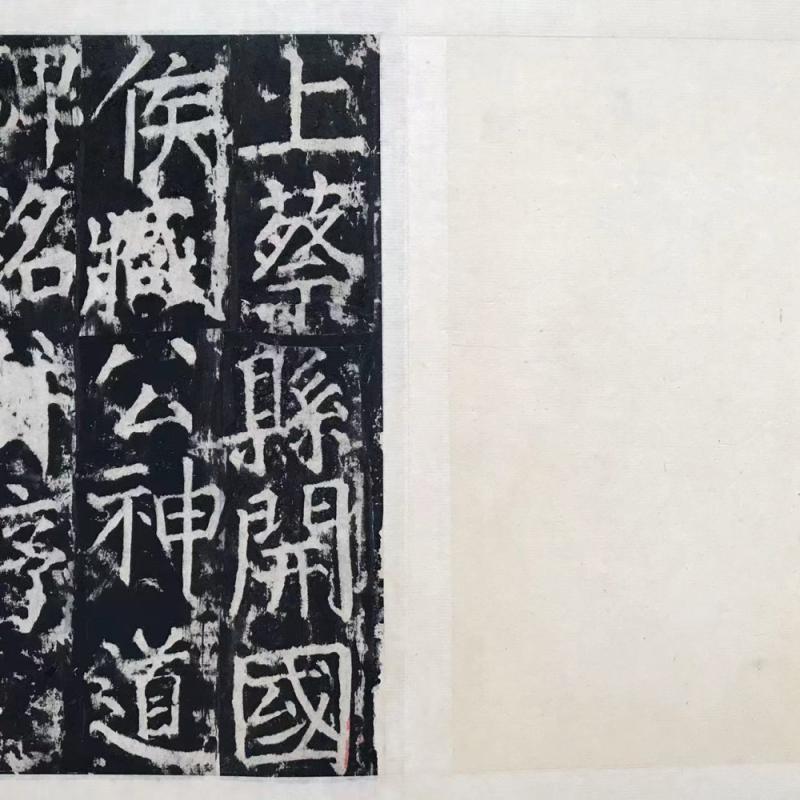 上蔡縣開國
侯臧公神道
碑銘并序